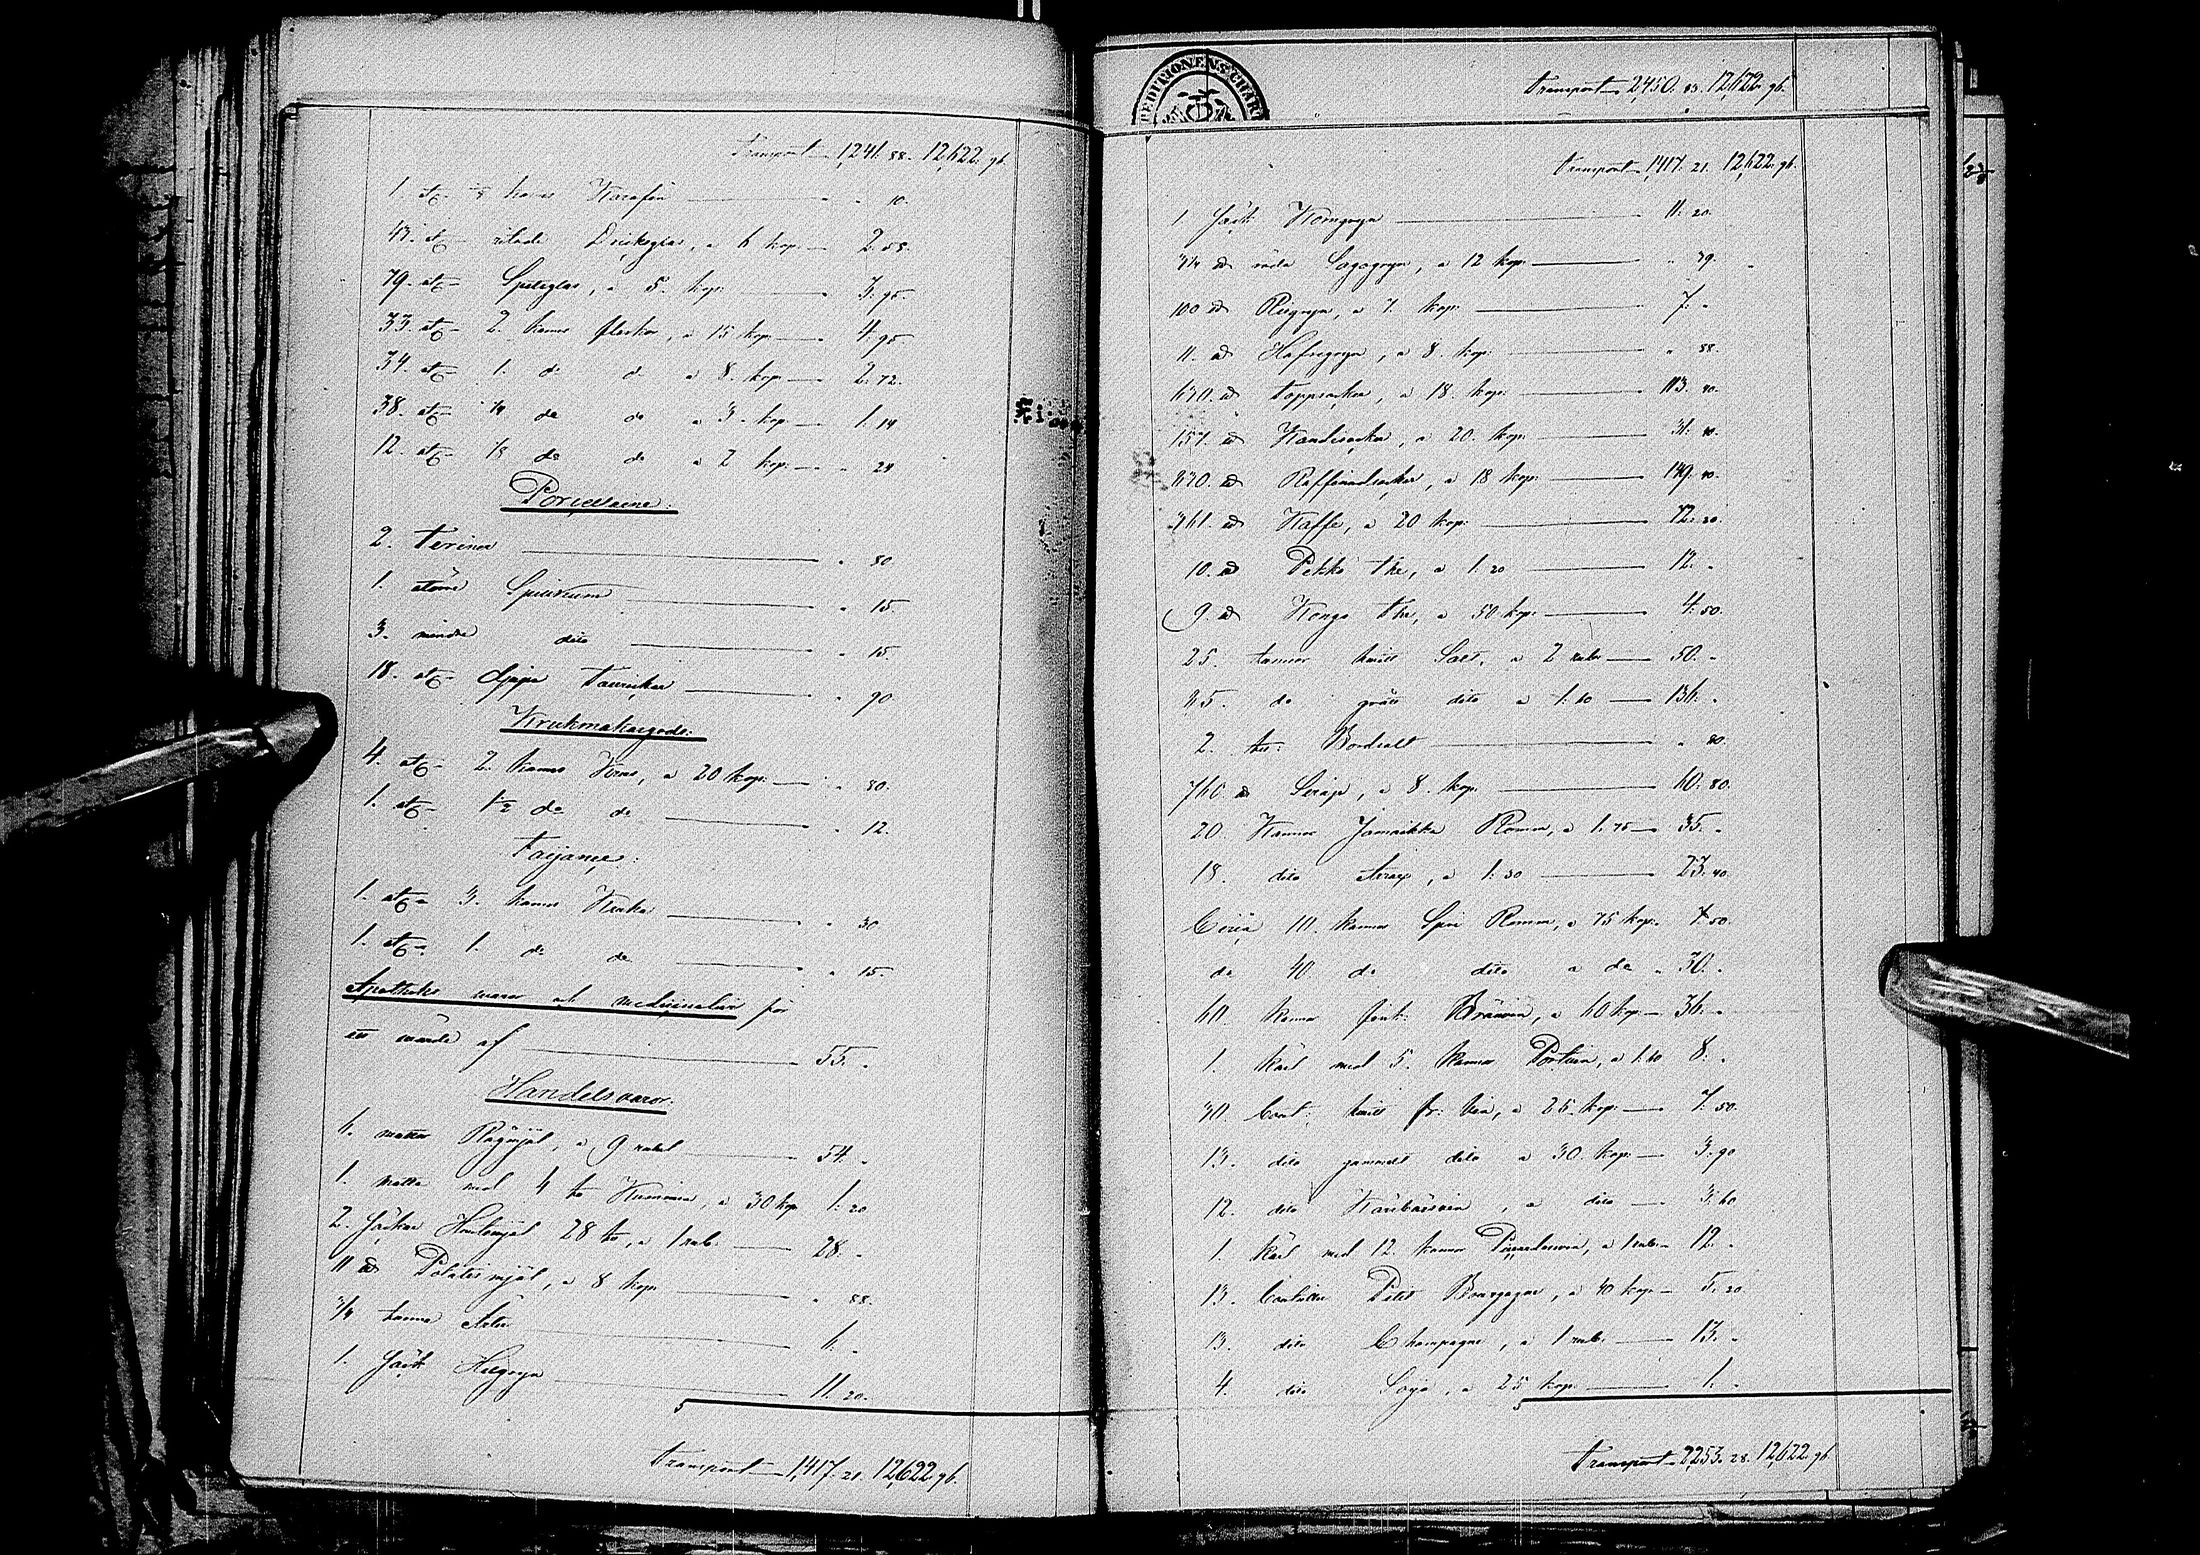 Transport 1,241. 88. 12,622. 96.
1. st. kanns Karafin " 10.
43. st. slade Dricksglas, a 6 kop. 2. 58.
79. st. Spetsglas, a 5. kop. 3. 95.
33. st. 2. kanns flaskor, a 15 kop. 4. 95
34. st. 1. do d. a 8. kop. 2. 72.
38. st. do do a 3. kop. 1. 14
12. st. do do a 2 kop. " 24
Porcellaine:
2. Teriner " 80
1. större Spilkum " 15.
3. mindre dito " 15.
18. st. djupa Tallrickar " 90
Krukmakaregods:
4. st. 2. kanns Krus, a 20 kop. " 80.
1. st. 1/2 do do " 12.
Fayance:
1. st. 3. kanns Kruka " 30
1. st. 1. do do " 15.
Apotheks waror och medicinalier för
ett wärde af 55. "
Handelswaror.
6. mattor Rågmjöl, a 9 rubel 54. "
1. matta med 4 Kummin, a 30 kop 1: 20
2. säckar Hvetemjöl 28, a 1 rub. 28. "
11 Potatismjöl, a 8 kop. " 88.
3/4 tunna Ärter 6. "
1. säck Helgryn 11. 20.
Transport 1,417. 21. 12,622. 96.
Transport 2,450. 83. 12,622. 96.
EXPEDITIONENS CHARTA
Transport 1,417. 21. 12,622. 96.
1 säck Korngryn 11. 20.
röda Sagogryn, a 12 kop. " 39.
100 Risgryn, a 7. kop. 7. "
11. Hafregryn, a 8. kop. " 88.
630. Toppsocker, a 18. kop. 113. 40.
157. Kandisocker, a 20. kop. 31. 40.
830. Raffinadsocker, a 18 kop. 149. 40.
361. Kaffe, a 20 kop. 72. 20.
10. Pekko The, a 1. 20 12. "
9. Kongo The, a 50 kop. 4. 50.
25. tunnor hvitt Salt, a 2 rubel 50. "
85. do grått dito a 1. 60 136. "
2. Bordsalt " 80.
760. Sirap, a 8. kop. 60. 80.
20. Kannor Jamaikka Romm, a 1. 75 35. "
18. dito Arrak, a 1: 30 23. 40.
Circa 10. kannor Spri Romm, a 75 kop. 7. 50.
do 40 do dito a do 30. "
60. kannor fint Brännvin, a 60 kop. 36. "
1. kärl med 5. kannor Portvin, a 1. 60 8. "
30. Bout. hvitt fr. Vin, a 25. kop. 7. 50.
13. dito gammalt dito a 30. kop. 3. 90
12. dito Körsbärsvin, a dito 3. 60
1. kärl med 12. kannor Piccardonvin, a 1 rub. 12. "
13. Bouteiller Petit Bourgogne, a 40 kop. 5. 20
13. dito Champagne, a 1 rub. 13. "
4. dito Soja, a 25 kop. 1. "
Transport 2,253. 28. 12,622. 96.